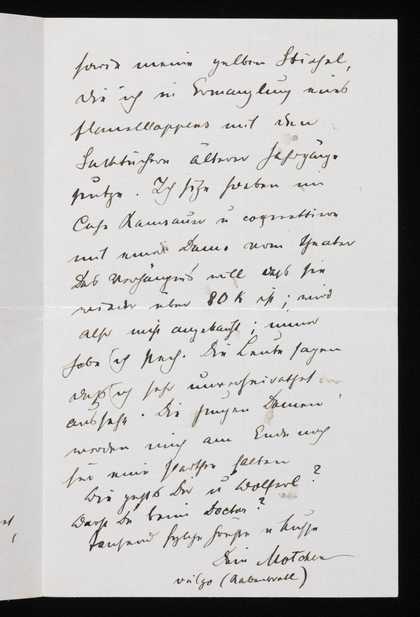 sowie meine gelben Stiefel,
die ich in Ermanglung eines
Flanelllappens mit den
älterer Jahrgänge
putze. Ich sitze soeben im
Café Ramsauer u coquettiere
mit einer Dame vom Theater
Das will daß sie
wieder über 80 K ist; wird
also mich angebracht; immer
habe ich Pech. Die Leute sagen
daß ich sehr unverheiratet
aussehe. Die jungen Damen
werden mich am Ende noch
für eine halten
Wie geht's Dir u Wolferl?
Warst Du beim Doctor?
Tausend Grüße u Küsse
Dein Motchen
vulgo (Rabenvatl)